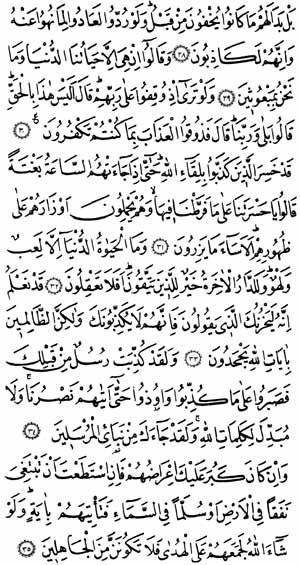 بَلْ بَدَا لَهُمْ مَا كَانُوا يُخْفُونَ مِنْ قَبْلُ وَلَوْ رُدُّوا لَعَادُوا لِمَا نُهُوا عَنْهُ
وَاِنَّهُمْ لَكَاذِبُونَ ﴿٢٨﴾ وَقَالُوا اِنْ هِيَ اِلَّا حَيَاتُنَا الدُّنْيَا وَمَا
نَحْنُ بِمَبْعُوثِينَ ﴿٢٩﴾ وَلَوْ تَرٰى اِذْ وُقِفُوا عَلٰى رَبِّهِمْ قَالَ اَلَيْسَ هٰذَا بِالْحَقِّ
قَالُوا بَلٰى وَرَبِّنَا قَالَ فَذُوقُوا الْعَذَابَ بِمَا كُنْتُمْ تَكْفُرُونَ ﴿٣٠﴾
قَدْ خَسِرَ الَّذِينَ كَذَّبُوا بِلِقَاءِ اللّٰهِ حَتّٰى اِذَا جَاءَتْهُمُ السَّاعَةُ بَغْتَةً
قَالُوا يَا حَسْرَتَنَا عَلٰى مَا فَرَّطْنَا فِيهَا وَهُمْ يَحْمِلُونَ اَوْزَارَهُمْ عَلٰى
ظُهُورِهِمْ اَلَا سَاءَ مَا يَزِرُونَ ﴿٣١﴾ وَمَا الْحَيٰوةُ الدُّنْيَا اِلَّا لَعِبٌ
وَلَهْوٌ وَلَلدَّارُ الْاٰخِرَةُ خَيْرٌ لِلَّذِينَ يَتَّقُونَ اَفَلَا تَعْقِلُونَ ﴿٣٢﴾ قَدْ نَعْلَمُ
اِنَّهُ لَيَحْزُنُكَ الَّذِي يَقُولُونَ فَاِنَّهُمْ لَا يُكَذِّبُونَكَ وَلٰكِنَّ الظَّالِمِينَ
بِاٰيَاتِ اللّٰهِ يَجْحَدُونَ ﴿٣٣﴾ وَلَقَدْ كُذِّبَتْ رُسُلٌ مِنْ قَبْلِكَ
فَصَبَرُوا عَلٰى مَا كُذِّبُوا وَاُوذُوا حَتّٰى اَتٰيهُمْ نَصْرُنَا وَلَا
مُبَدِّلَ لِكَلِمَاتِ اللّٰهِ وَلَقَدْ جَاءَكَ مِنْ نَبَائِ الْمُرْسَلِينَ ﴿٣٤﴾
وَاِنْ كَانَ كَبُرَ عَلَيْكَ اِعْرَاضُهُمْ فَاِنِ اسْتَطَعْتَ اَنْ تَبْتَغِيَ
نَفَقًا فِي الْاَرْضِ اَوْ سُلَّمًا فِي السَّمَاءِ فَتَأْتِيَهُمْ بِاٰيَةٍ وَلَوْ
شَاءَ اللّٰهُ لَجَمَعَهُمْ عَلَى الْهُدٰى فَلَا تَكُونَنَّ مِنَ الْجَاهِلِينَ ﴿٣٥﴾